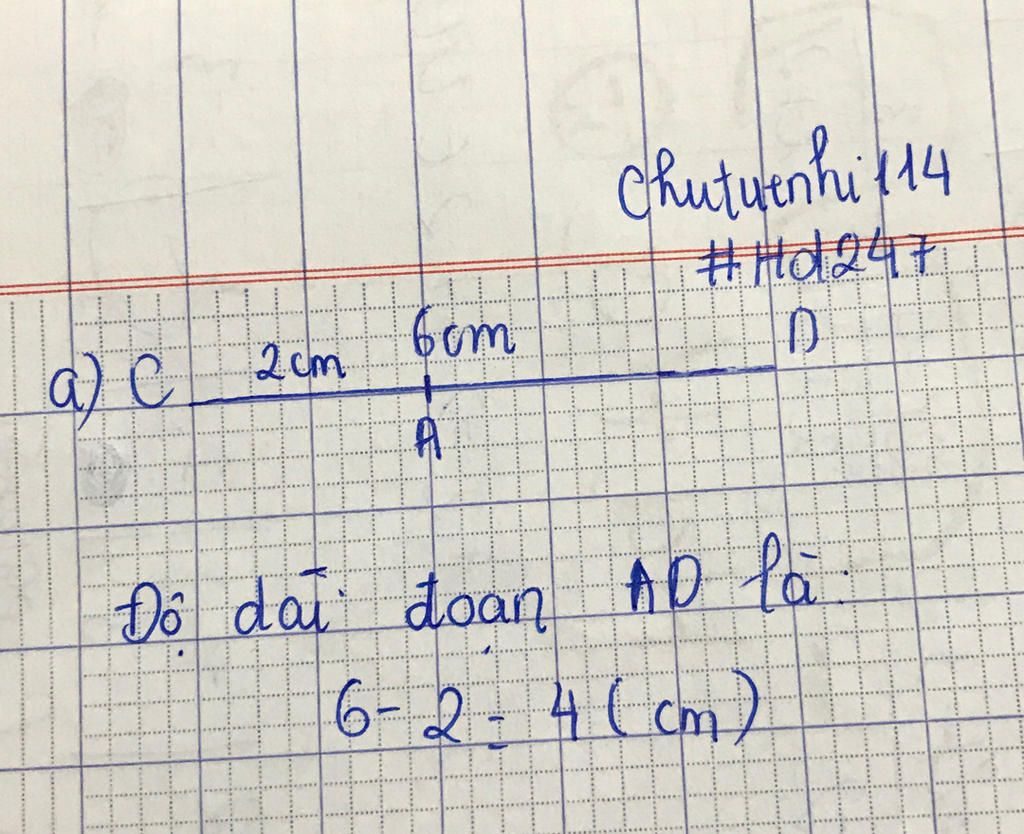 chutuenhi114
#Hd247
a) C 2cm 6cm D
A
Độ dài đoạn AD là:
6 - 2 = 4 (cm)